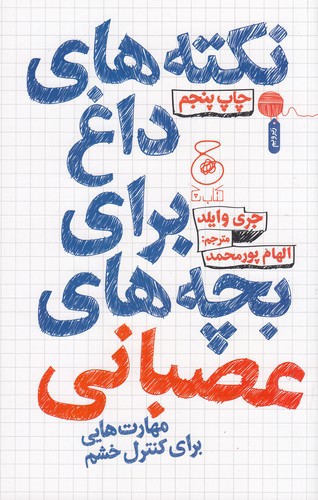 نکته‌های
چاپ پنجم
داغ
زیر و بم
کتاب چ
برای
جری وایلد
مترجم:
الهام پورمحمد
بچه‌های
عصبانی
مهارت‌هایی
برای کنترل خشم